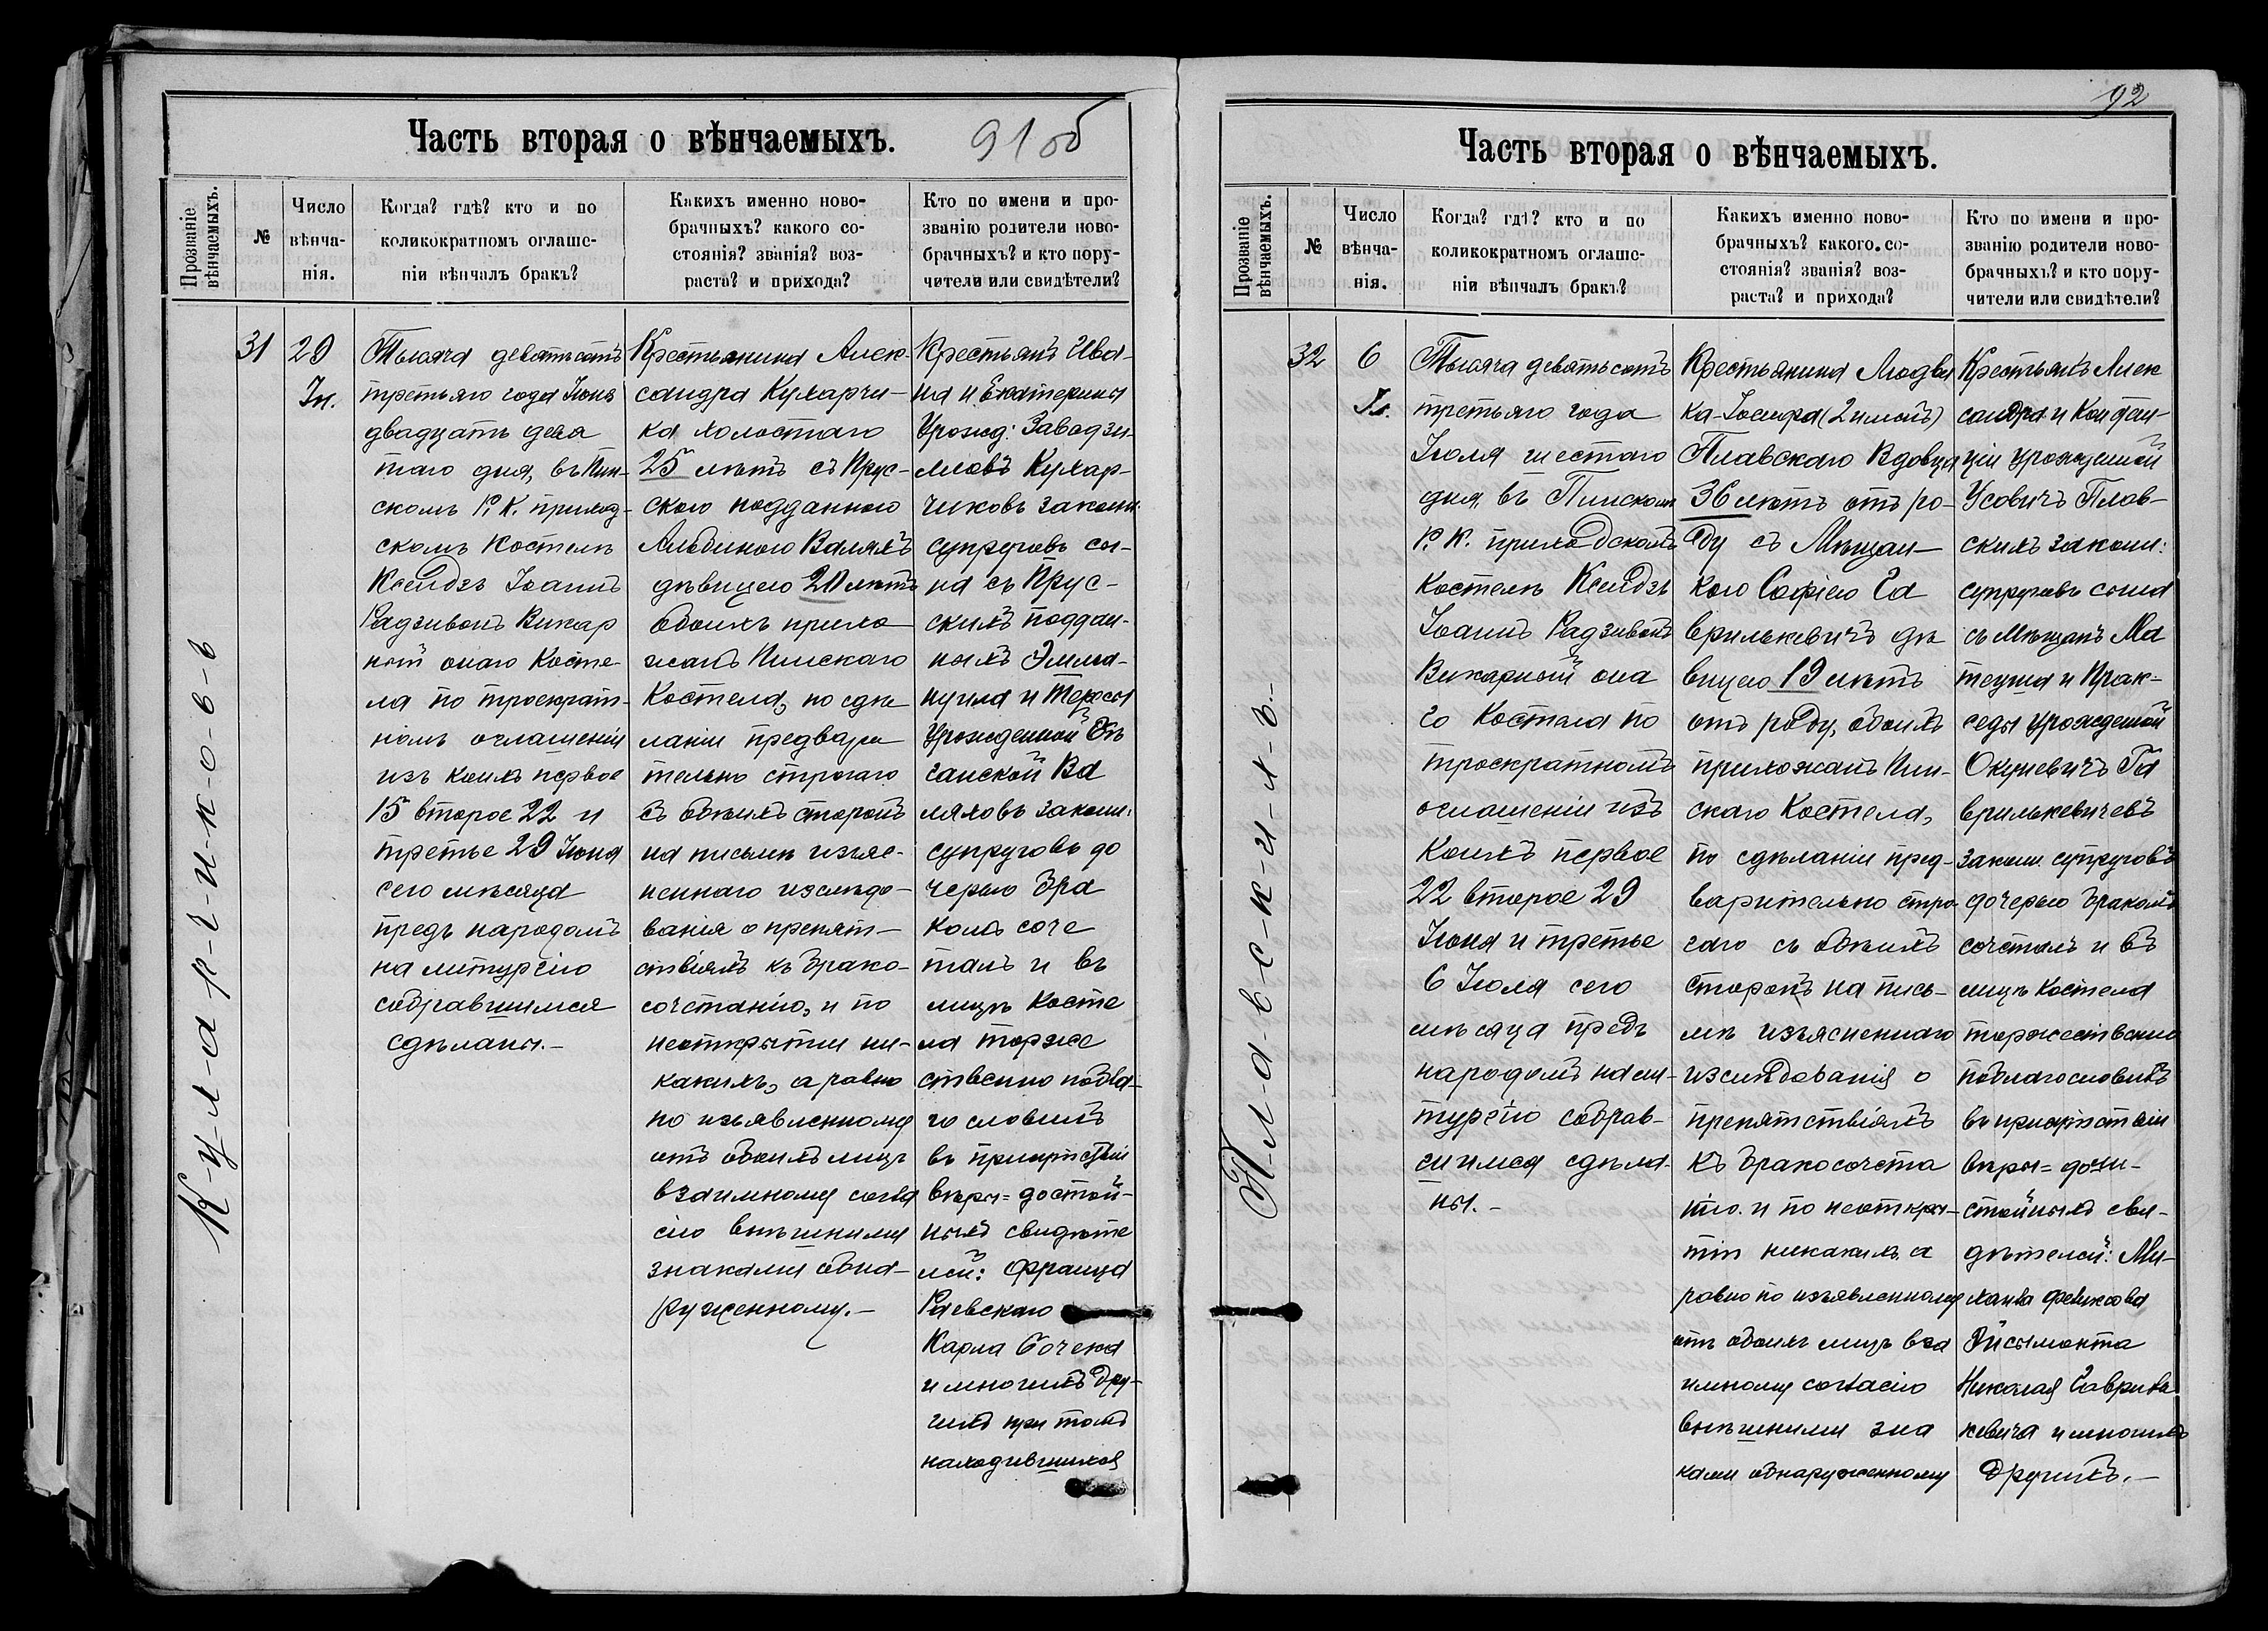 Часть вторая о вѣнчаемыхъ.
91 об
Прозваніе вѣнчаемыхъ.
№
Число вѣнча-нія.
Когда? гдѣ? кто и по
коликократномъ оглаше-
ніи вѣнчалъ бракъ?
Какихъ именно ново-
брачныхъ? какого со-
стоянія? званія? воз-
раста? и прихода?
Кто по имени и про-
званію родители ново-
брачныхъ? и кто пору-
чители или свидѣтели?
К-у-х-а-р-ч-и-к-о-в-ъ
31
29
Ін.
Тысяча девятьсотъ
третьяго года Іюня
двадцать девя
таго дня, въ Пин-
скомъ Р. К. приход-
скомъ Костелѣ
Ксендзъ Іоаннъ
Радзивонъ Викар
ный онаго Косте-
ла по троекрат-
номъ оглашеніи
изъ коихъ первое
15 второе 22 и
третье 29 Іюня
сего мѣсяца
предъ народомъ
на литургію
собравшимся
сдѣланы.-
Крестьянина Алек-
сандра Кухарчи-
ка холостаго
25 лѣтъ съ Прус-
скою подданною
Альбиною Валяхъ
дѣвицею 20 лѣтъ
обоихъ прихо
жанъ Пинскаго
Костела, по сдѣ
ланіи предвари
тельно строгаго
съ обѣихъ сторонъ
на письмѣ изъяс-
неннаго изслѣдо-
ванія о препят-
ствіяхъ къ брако-
сочетанію, и по
неоткрытіи ни-
какихъ, а равно
по изъявленному
отъ обоихъ лицъ
взаимному согла
сію внѣшними
знаками обна-
руженному.-
Крестьянъ Ива-
на и Екатерины
Урожд: Заводзи-
мовъ Кухар-
чиковъ законн:
супруговъ сы-
на съ Прус-
скихъ поддан-
ныхъ Эмма-
нуила и Тересы
Урожденной
ганской Ва
ляховъ законн:
супруговъ до
черью бра
комъ соче
талъ и въ
лицѣ Косте
ла торже
ственно побла-
гословилъ
въ присутствіи
вѣры=достой-
ныхъ свидѣте
лей: Франца
Раевскаго
Карла
и многихъ дру-
гихъ при томъ
находившихся
92
Часть вторая о вѣнчаемыхъ.
Прозваніе вѣнчаемыхъ.
№
Число вѣнча-нія.
Когда? гдѣ? кто и по
коликократномъ оглаше-
ніи вѣнчалъ бракъ?
Какихъ именно ново-
брачныхъ? какого со-
стоянія? званія? воз-
раста? и прихода?
Кто по имени и про-
званію родители ново-
брачныхъ? и кто пору-
чители или свидѣтели?
П-л-а-в-с-к-и-х-ъ.-
32
6
Іл.
Тысяча девятьсотъ
третьяго года
Іюля шестаго
дня, въ Пинскомъ
Р. К. приходскомъ
Костелѣ Ксендзъ
Іоаннъ Радзивонъ
Викарный она
го Костела по
троекратномъ
оглашеніи изъ
коихъ первое
22 второе 29
Іюня и третье
6 Іюля сего
мѣсяца предъ
народомъ на ли-
тургію собрав-
шимся сдѣла-
ны.-
Крестьянина Людви
ка-Іосифа (2 имянъ)
Плавскаго Вдовца
36 лѣтъ отъ ро-
ду съ Мѣщан-
кою Софіею Га
врилькевичъ дѣ
вицею 19 лѣтъ
отъ роду, обоихъ
прихожанъ Пин-
скаго Костела,
по сдѣланіи пред-
варительно стро
гаго съ обѣихъ
сторонъ на пись-
мѣ изъясненнаго
изслѣдованія о
препятствіяхъ
къ бракосочета
нію. и по неоткры-
тіи никакихъ а
равно по изъявленному
отъ обоихъ лицъ вза
имному согласію
внѣшними зна
ками обнаруженному
Крестьянъ Алек
сандра и Констан-
ціи урожденной
Усовичъ Плав-
скихъ законн:
супруговъ сына
съ Мѣщанъ Ма
теуша и Прак-
седы урожденной
Окуневичъ Га
врилькевичевъ
законн. супруговъ
дочерью бракомъ
сочеталъ и въ
лицѣ Костела
торжественно
поблагословилъ
въ присутствіи
вѣры=досто-
стойныхъ сви-
дѣтелей: Ми-
хаила
Николая Гавриль
кевича и многихъ
другихъ.-